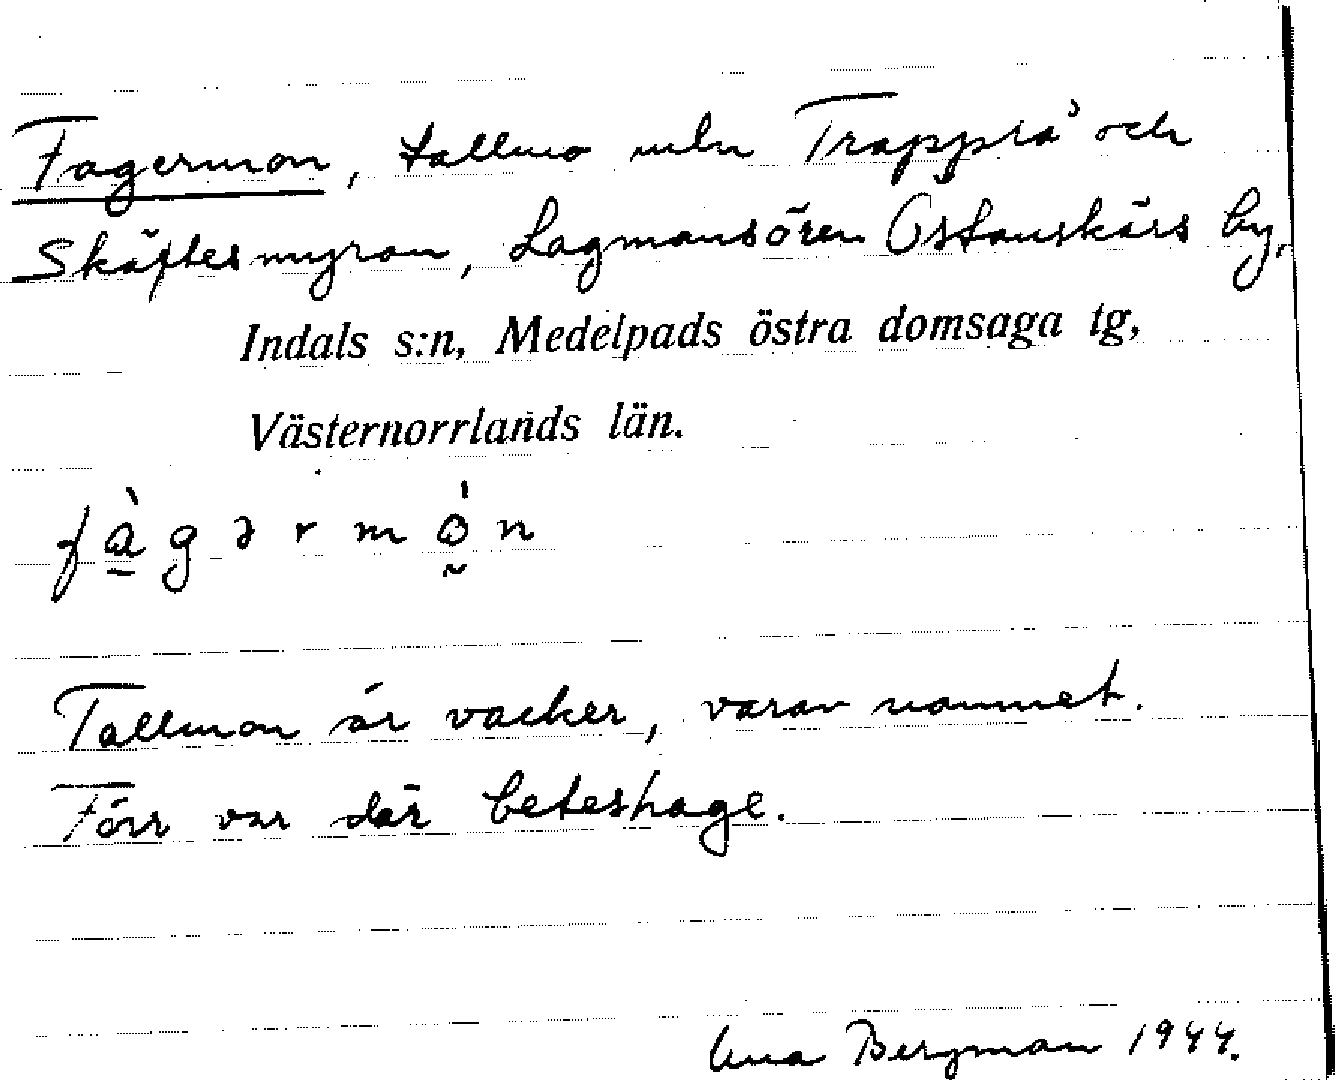 Fagermon, tallmo mln Trapprå och
Skäftesmyran, Lagmansören Östanskärs by,
Indals s:n, Medelpads östra domsaga tg,
Västernorrlands län.
fàgərmón
Tallmon är vacker, varav namnet.
Förr var där beteshage.
Anna Bergman 1944.